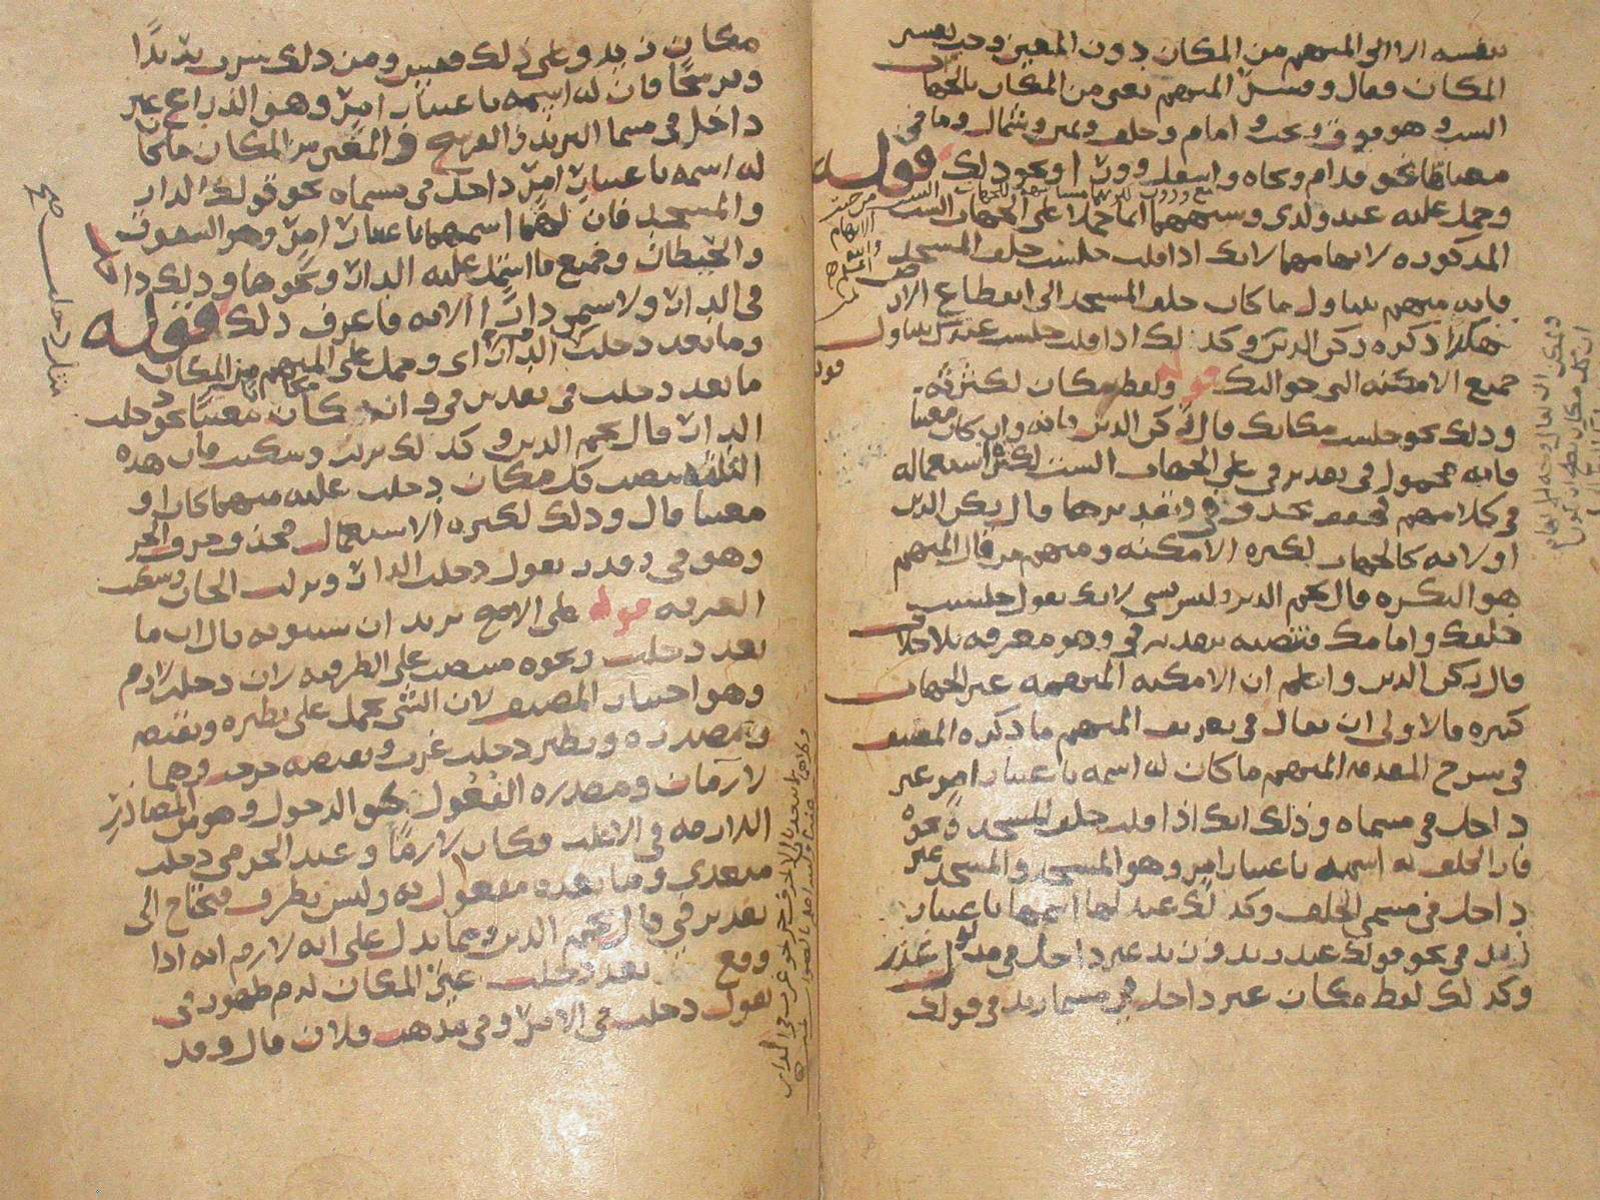 بنفسه الا الى المبهم من المكان دون المعين وحين يفسر
المكان فقال وفسر المبهم يعني من المكان بالجهات
الست وهو فوق وتحت وامام وخلف ويمين وشمال وما في
معناها نحو قدام وتجاه واسفل وورا ونحو ذلك قوله
وحمل عليه عند ولدى وشبههما انما حملا على الجهات الست
المذكورة لابهامهما لانك اذا قلت جلست خلف المسجد
فانه مبهم يتناول ما كان خلف المسجد الى انقطاع الارض
هكذا ذكره ركن الدين وكذلك اذا قلت جلست عندك يتناول
جميع الامكنة التي حواليك قوله ولفظ مكان لكثرته
وذلك نحو جلست مكانك قال ركن الدين فانه وان كان معينا
فانه محمول في تقدير في على الجهات الست لكثرة استعماله
في كلامهم فحذف في وتقديرها قال ركن الدين
او لانه كالجهات لكثرة الامكنة ومنهم من قال المبهم
هو النكرة قال نجم الدين وليس بشي لانك تقول جلست
خلفك وامامك فتنصبه بتقدير في وهو معرفة بلا خلاف
قال ركن الدين واعلم ان الامكنة المبهمة غير الجهات
كثيرة فالاولى ان يقال في تعريف المبهم ما ذكره المصنف
في شرح المقدمة المبهم ما كان له اسمه باعتبار امر غير
داخل في مسماه وذلك انك اذا قلت خلف المسجد ونحوه
فان الخلف له اسمه باعتبار امر وهو المسجد والمسجد غير
داخل في مسمى الخلف وكذلك عند لها اسمها باعتبار
زيد في نحو قولك عند زيد وزيد غير داخل في مدلول عند
وكذلك لفظ مكان غير داخل في مسما زيد في قولك
مكان زيد وعلى ذلك فقس ومن ذلك سرت بريدا
وفرسخا فان له اسمه باعتبار امر وهو الذراع غير
داخل في مسما البريد والفرسخ والمعين من المكان ما كان
له اسمه باعتبار امر داخل في مسماه نحو قولك الدار
والمسجد فان لهما اسمهما باعتبار امر وهو السقوف
والحيطان وجميع ما اشتمل عليه الدار ونحوها وذلك داخل
في الدار ولا يسمى دارا الا به فاعرف ذلك قوله
وما بعد دخلت الدار اي وحمل على المبهم من المكان
ما بعد دخلت في تقدير في وان كان مكانا معينا نحو دخلت
الدار قال نجم الدين وكذلك نزلت وسكنت فان هذه
الثلاثة ينصب كل مكان دخلت عليه مبهما كان او
معينا قال وذلك لكثرة الاستعمال فحذف حرف الجر
وهو في وقدر تقول دخلت الدار ونزلت الخان وسكنت
الغرفة قوله على الاصح يريد ان سيبويه قال ان ما
بعد دخلت ونحوه منتصب على الظرفية لان دخلت لازم
وهو اختيار المصنف لان الشي يحمل على نظيره ونقيضه
ومصدره ونظير دخلت غرت ونقيضه خرجت وهما
لازمان ومصدره الفعول نحو الدخول وهو من المصادر
اللازمة في الاغلب فكان لازما وعند الجرمي دخلت
متعدي وما بعده مفعول به وليس بظرف فيحتاج الى
تقدير في قال نجم الدين ومما يدل على انه لازم انه اذا
وقع بعد دخلت غير المكان لزم ظهور في
تقول دخلت في الامر وفي مذهب فلان قال وقد